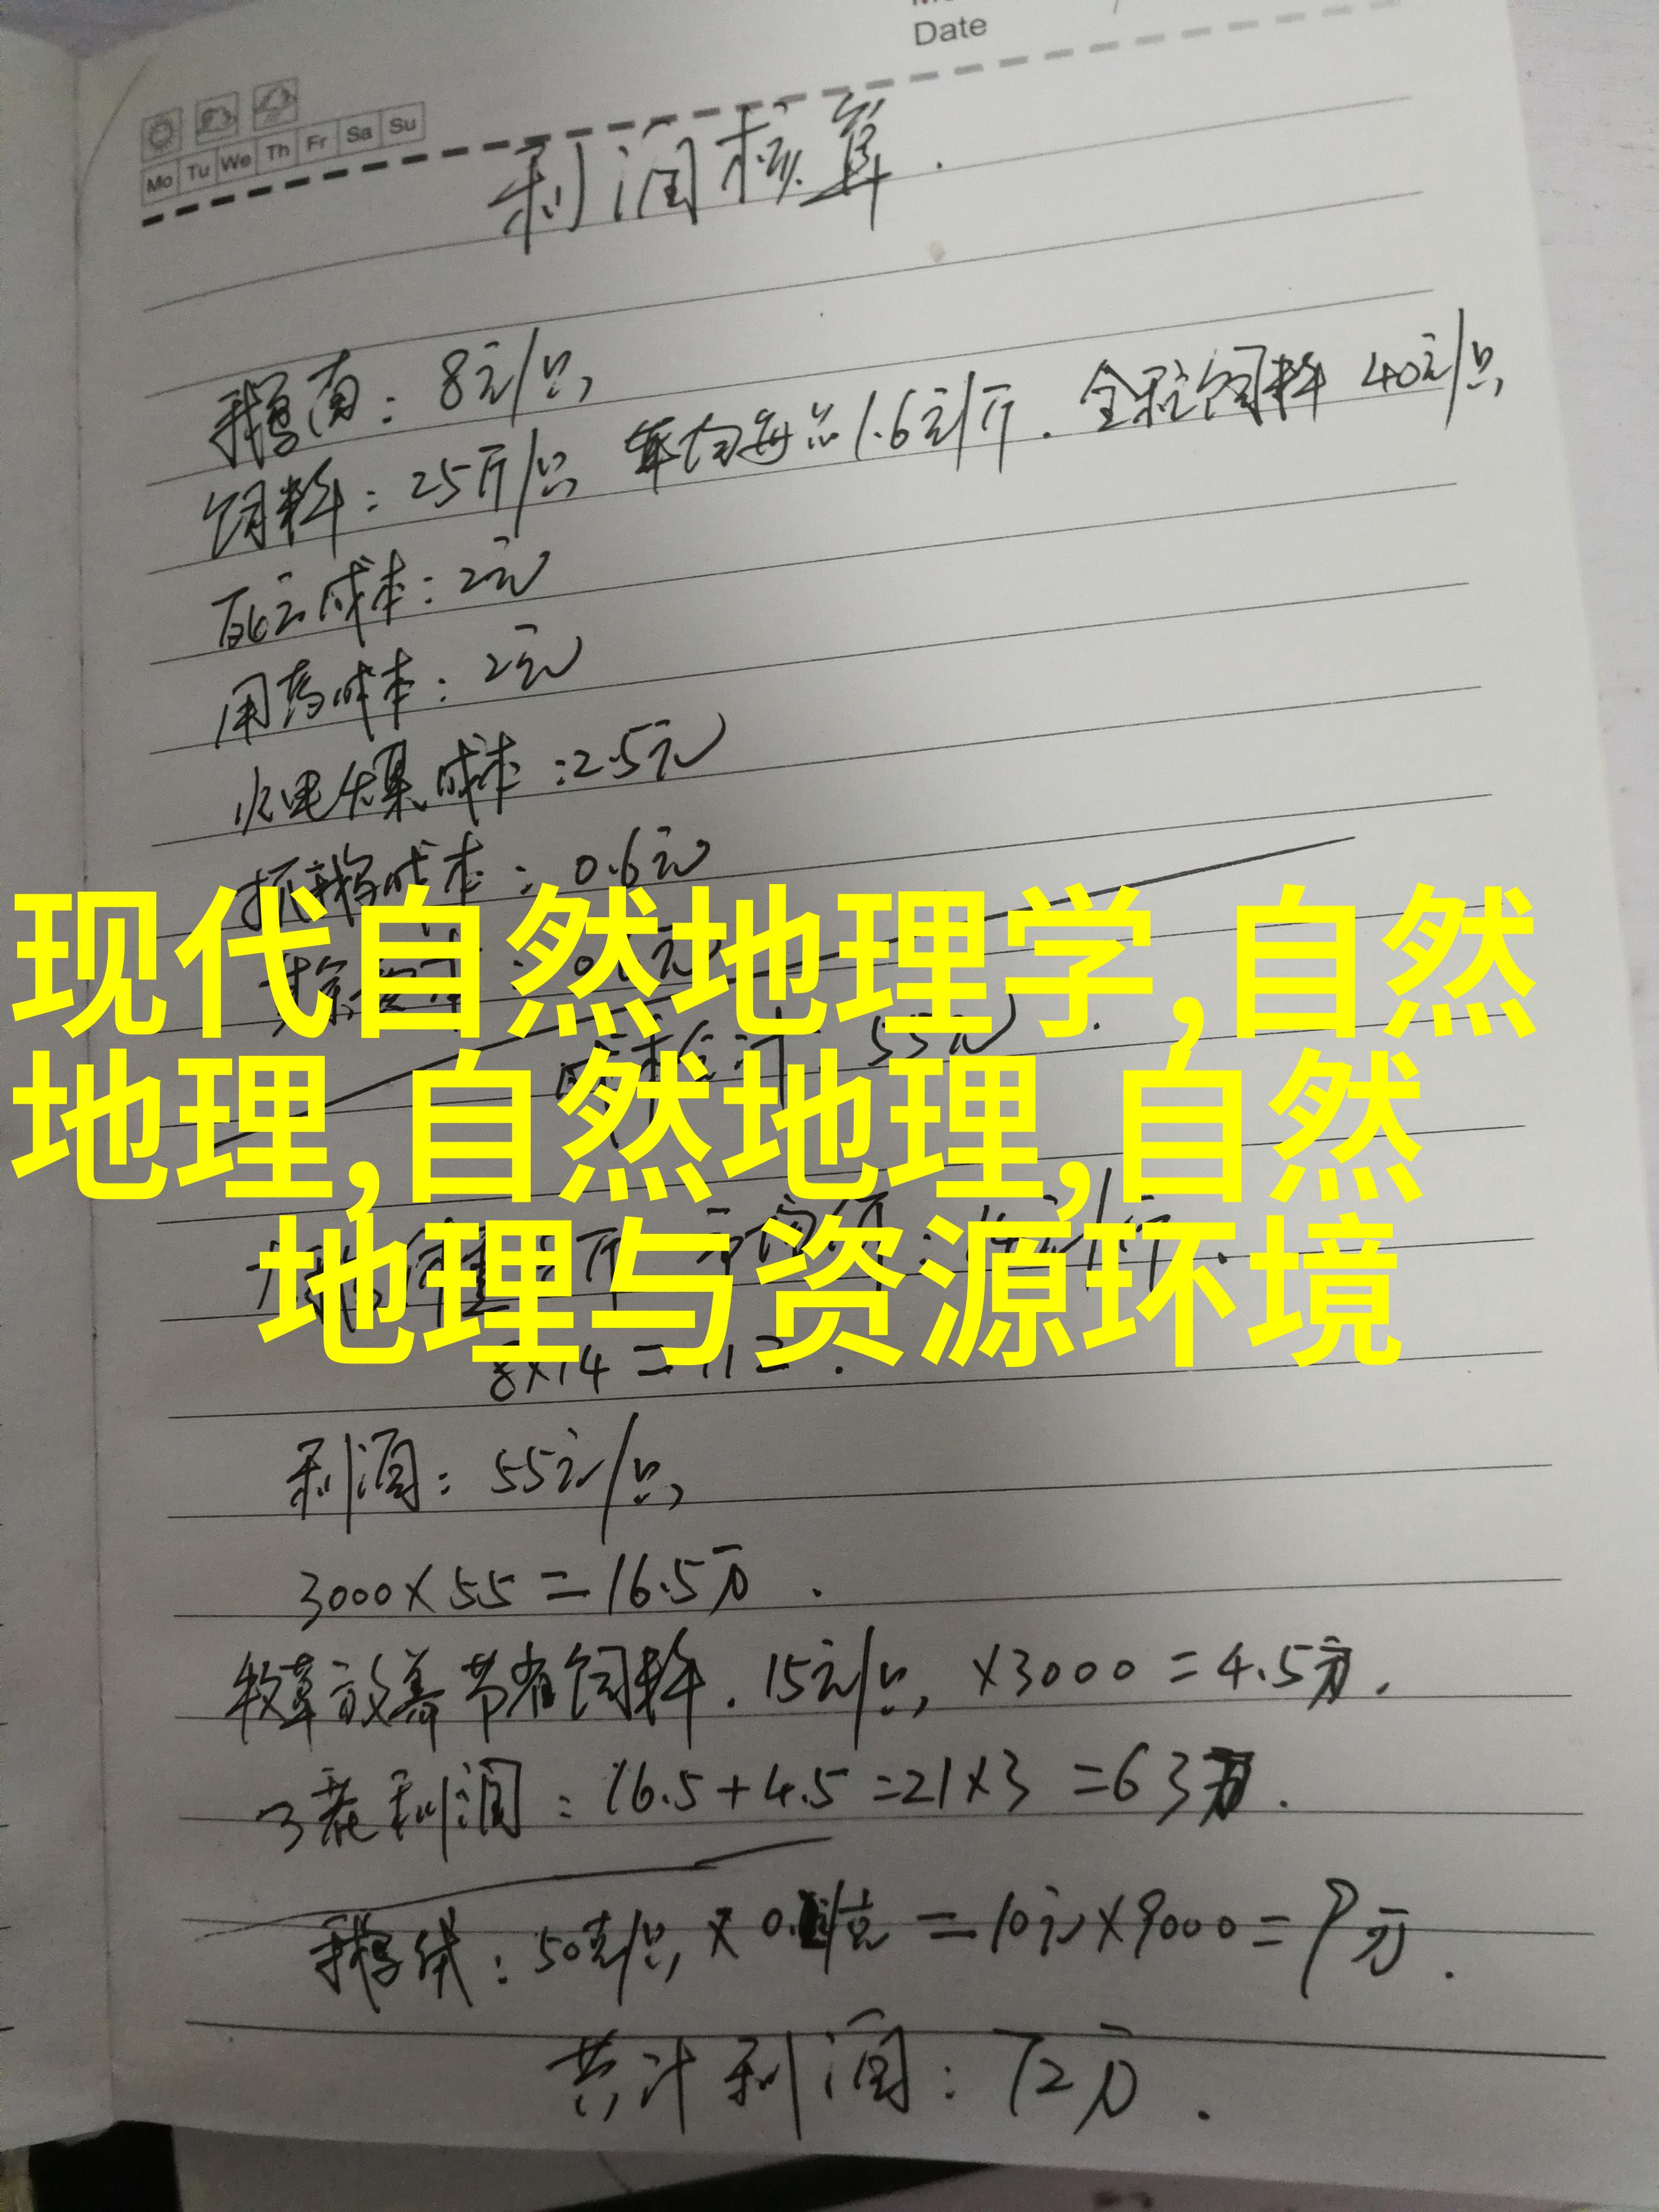 Date
Mo Tu We Th Fr Sa Su
利润核算.
鹅苗: 8元/只
饲料: 25斤/只 平均每斤1.6元/斤. 全程饲料 40元/只
死亡成本: 2元
用药成本: 2元
水电煤成本: 2.5元
抓鹅成本: 0.6元
现代自然地理学,自然
地理,自然地理,自然
地理与资源环境
8×14=112.
利润: 55元/只
3000×55=16.5万.
牧草放养节省饲料. 15元/只, ×3000=4.5万.
3茬利润: 16.5+4.5=21×3=63万.
鹅绒: 50克/只 × 0. /克 =10元×9000=9万.
共计利润: 72万.